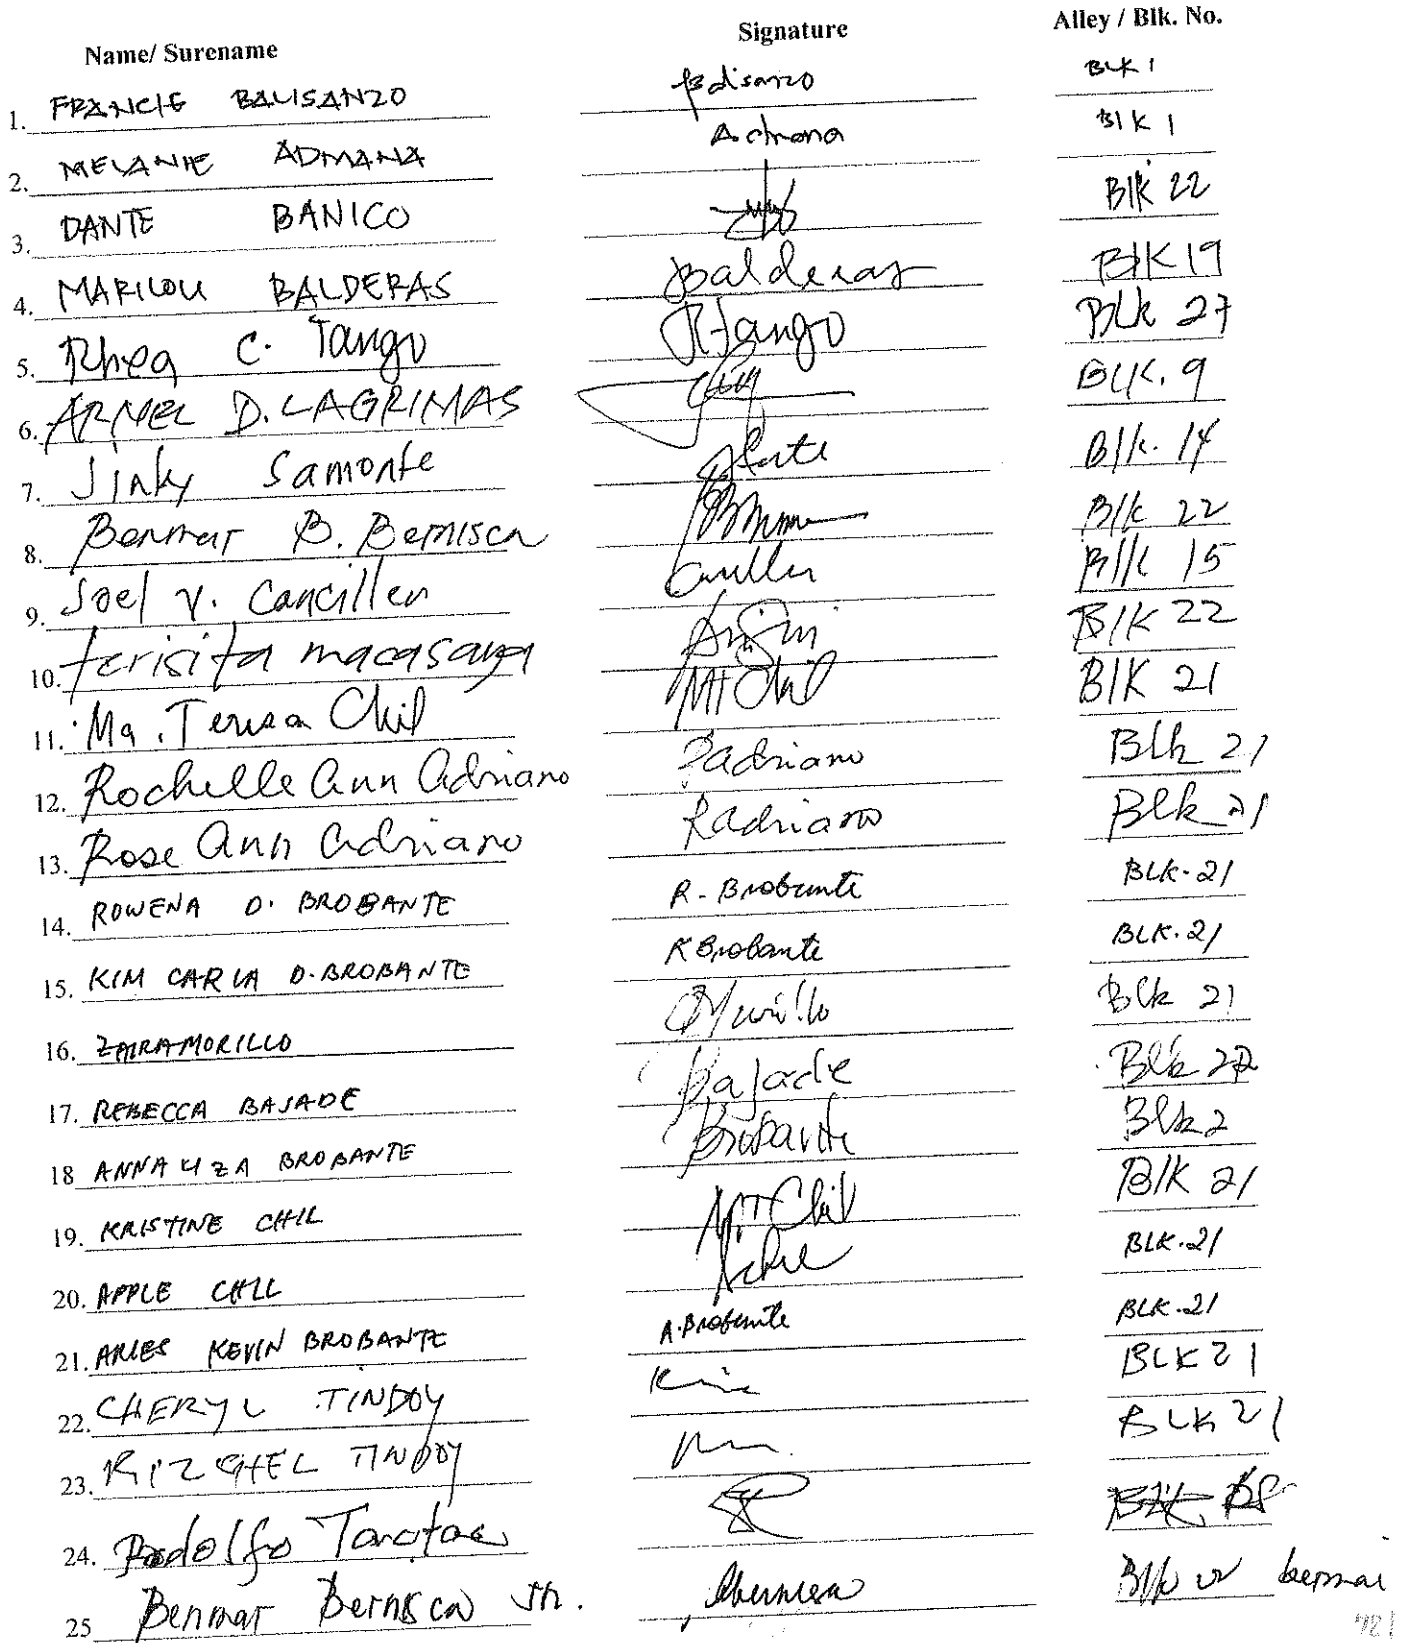 Name/ Surename Signature Alley / Blk. No.
1. FRANCIE BALISANZO Balisanzo BLK 1
2. MELANIE ADMANA Admana Blk 1
3. DANTE BANICO Blk 22
4. MARILOU BALDERAS Balderas Blk 19
5. Rhea C. Tango RTango Blk 27
6. ARNEL D. LAGRIMAS BLK. 9
7. Jinky Samonte Blk. 14
8. Benmar B. Bernisca Blk 22
9. Joel V. Canciller Blk 15
10. terisita macasaya Blk 22
11. Ma. Teresa Chil MTChil Blk 21
12. Rochelle Ann Adriano Radriano Blk 21
13. Rose Ann Adriano Radriano Blk 21
14. ROWENA O. BROBANTE R. Brobante BLK. 21
15. KIM CARLA O. BROBANTE K Brobante BLK. 21
16. ZAIRA MORILLO Blk 21
17. REBECCA BAJADE Bajade Blk 22
18 ANNA LIZA BROBANTE Brobante Blk 2
19. KRISTINE CHIL MTChil Blk 21
20. APPLE CHIL BLK. 21
21. ARIES KEVIN BROBANTE A. Brobante BLK. 21
22. CHERYL TINDOY BLK 21
23. RIZCHEL TINDOY BLK 21
24. Rodolfo
25 Benmar Bernisca Jr.